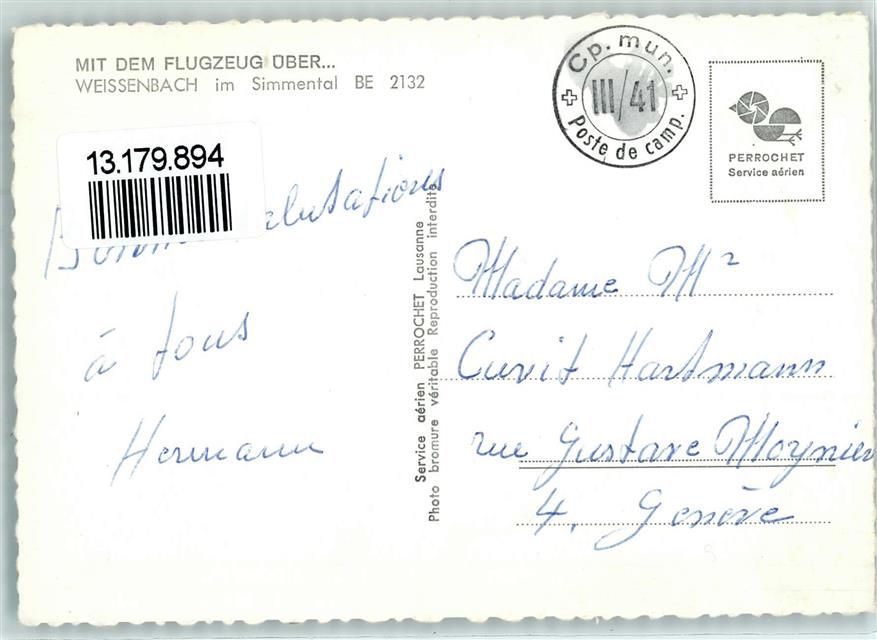 MIT DEM FLUGZEUG ÜBER...
WEISSENBACH im Simmental BE 2132
13.179.894
Cp. mun.
III/41
Poste de camp.
PERROCHET
Service aérien
salutations
à tous
Hermann
Service aérien PERROCHET Lausanne
Photo bromure véritable Reproduction interdite
Madame M²
Curit Hartmann
rue Gustave Moynier
4, Genève